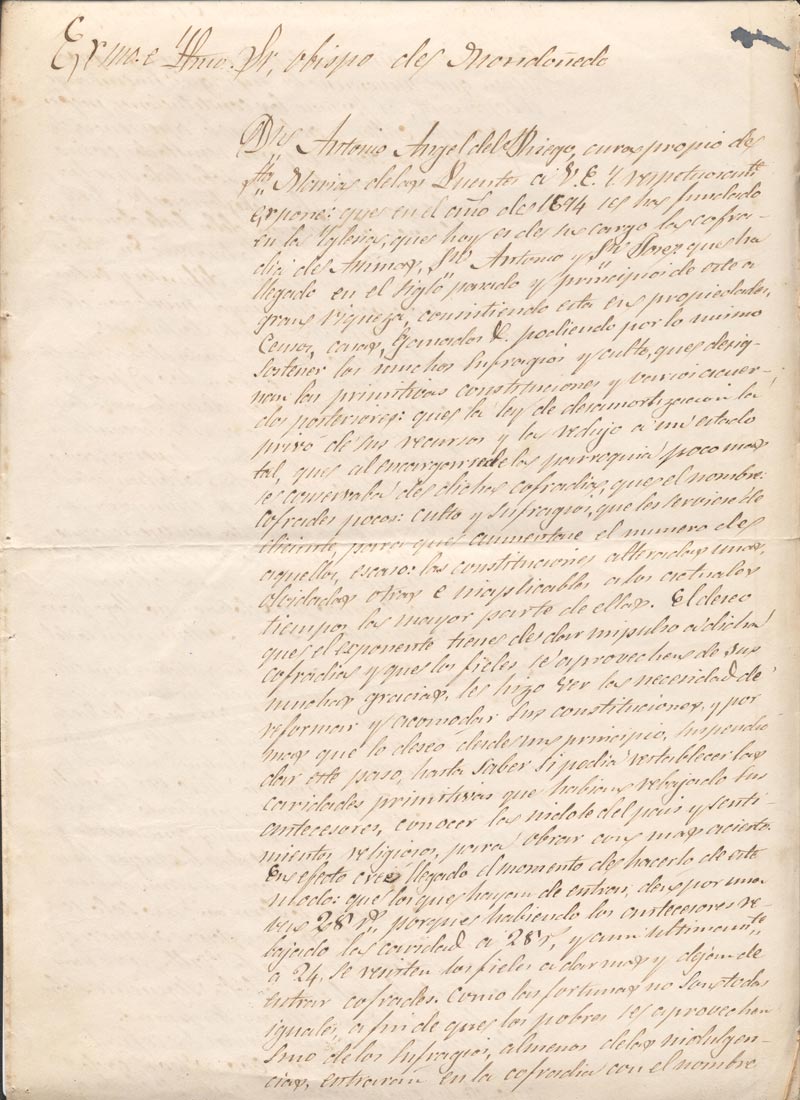 Exmo. e Ilmo. Sr. obispo de Mondoñedo
Dn Antonio Angel del Riego, cura propio de
Sta Maria de las Puentes a V. E. Y. respetuosamte
expone: que en el año de 1694 se ha fundado
en la Yglesia, que hoy es de su cargo la cofra-
dia de Animas, Sn Antonio y Sn Jose, que ha
llegado en el siglo pasado y principios de este a
gran riqueza, consistiendo esta en propiedades,
Censos, casas, Ganados &. pudiendo por lo mismo
Sostener los muchos Sufragios y culto, que desig-
nan las primitivas constituciones y varios acuer-
dos posteriores: que la ley de desamortizacion la
privó de sus recursos y la redujo a un estado
tal, que al encargarse de la parroquia poco mas
se conservaba de dicha cofradia, que el nombre:
cofrades pocos: culto y Sufragios, que les sirviese de
aliciente, para que aumentase el numero de
aquellos, escaso: las constituciones alteradas unas,
olvidadas otras e inaplicables a los actuales
tiempos la mayor parte de ellas. El deseo
que el exponente tiene de dar impulso a dicha
cofradia y que los fieles se aprovechen de sus
muchas gracias, le hizo ver la necesidad de
reformar y acomodar sus constituciones, y por
mas que lo deseó desde un principio, suspendio
dar este paso, hasta Saber si podia restablecer las
caridades primitivas que habian rebajado sus
antecesores, conocer la indole del pais y senti-
mientos religiosos, para obrar con mas acierto.
En efecto creé llegado el momento de hacerlo de este
modo: que los que hayan de entrar, den por una
vez 28 rs, porque habiendo los antecesores re-
bajado la caridad a 28 rs, y aun ultimamte
a 24, se resisten los fieles a dar mas y dejan de
entrar cofrades. Como las fortunas no son todas
iguales, a fin de que los pobres se aprovechen
Sino de los Sufragios, al menos de las indulgen-
cias, entraran en la cofradia con el nombre